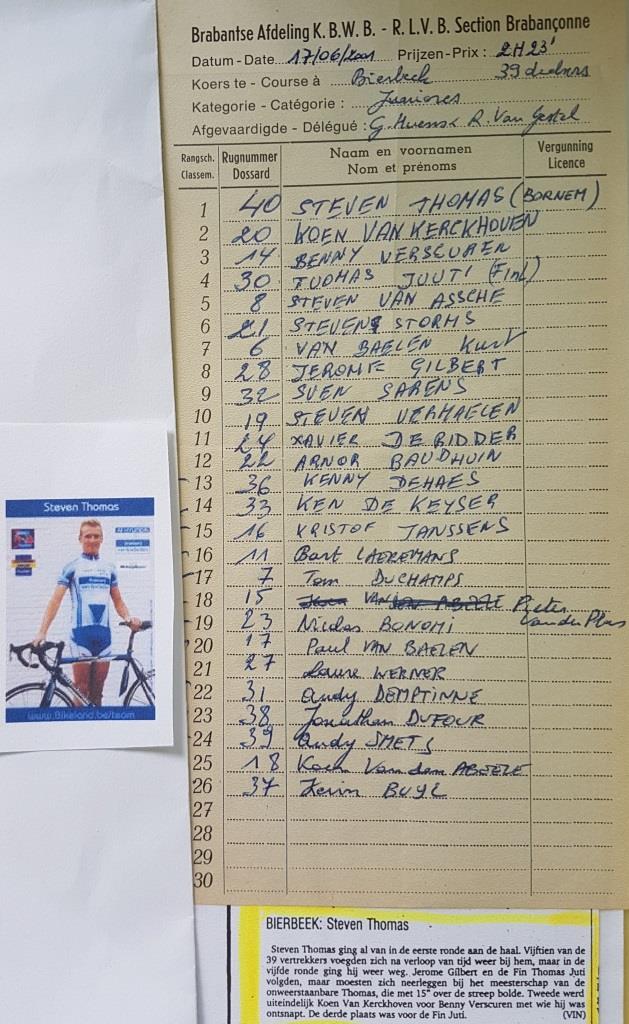 Steven Thomas
Brabantse Afdeling K.B.W.B. - R.L.V.B. Section Brabançonne
Datum - Date 17/06/ Prijzen - Prix : 2H23'
Koers te - Course à Bierbeek 39 
Kategorie - Catégorie : Juniores
Afgevaardigde - Délégué : 
Rangsch. Classem. Rugnummer Dossard Naam en voornamen Nom et prénoms Vergunning Licence
1 40 STEVEN THOMAS (BORNEM)
2 20 KOEN VAN KERCKHOVEN
3 14 BENNY VERSCUREN
4 30 THOMAS JUTI (Fin)
5 8 STEVEN VAN ASSCHE
6 21 STEVEN STORMS
7 6 VAN BAELEN KURT
8 28 JEROME GILBERT
9 32 SVEN SARENS
10 19 STEVEN VERMAELEN
11 24 XAVIER DE RIDDER
12 22 ARNOR BAUDHUIN
13 36 KENNY DEHAES
14 33 KEN DE KEYSER
15 16 KRISTOF JANSSENS
16 11 Bart
17 7 Tom DUCHAMPS
18 15 Pieter Van de Plas
19 23 Nicolas BONOMI
20 17 Paul VAN BAELEN
21 27 WERNER
22 31 Andy DEMTINNE
23 38 Jonathan DUFOUR
24 39 Rudy SMETS
25 18 Koen Van den ABEELE
26 37 Kevin BUYL
27
28
29
30
BIERBEEK: Steven Thomas
Steven Thomas ging al van in de eerste ronde aan de haal. Vijftien van de
39 vertrekkers voegden zich na verloop van tijd weer bij hem, maar in de
vijfde ronde ging hij weer weg. Jerome Gilbert en de Fin Thomas Juti
volgden, maar moesten zich neerleggen bij het meesterschap van de
onweerstaanbare Thomas, die met 15" over de streep bolde. Tweede werd
uiteindelijk Koen Van Kerckhoven voor Benny Verscuren met wie hij was
ontsnapt. De derde plaats was voor de Fin Juti. (VIN)